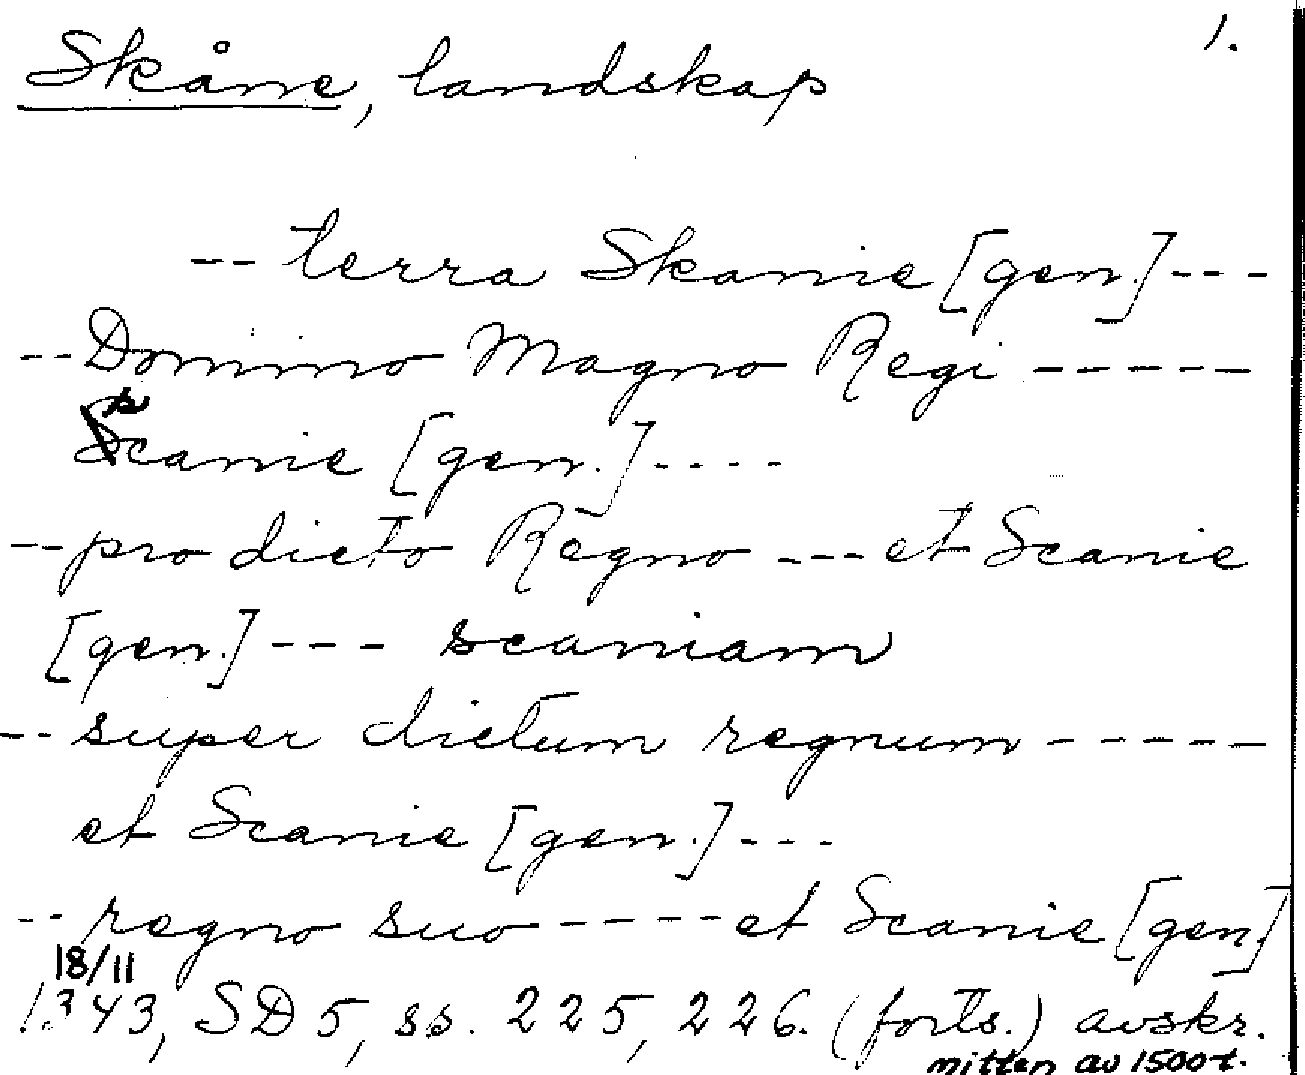 1.
Skåne, landskap
-- terra Skanie [gen.] ---
-- Domino Magno Regi -----
Scanie [gen.] ----
-- pro dicto Regno --- et Scanie
[gen.] --- scaniam
-- super dictum regnum -----
et Scanie [gen.] ---
-- regno suo ----- et Scanie [gen.]
18/11
1343, SD 5, ss. 225, 226. (forts.) avskr.
mitten av 1500-t.